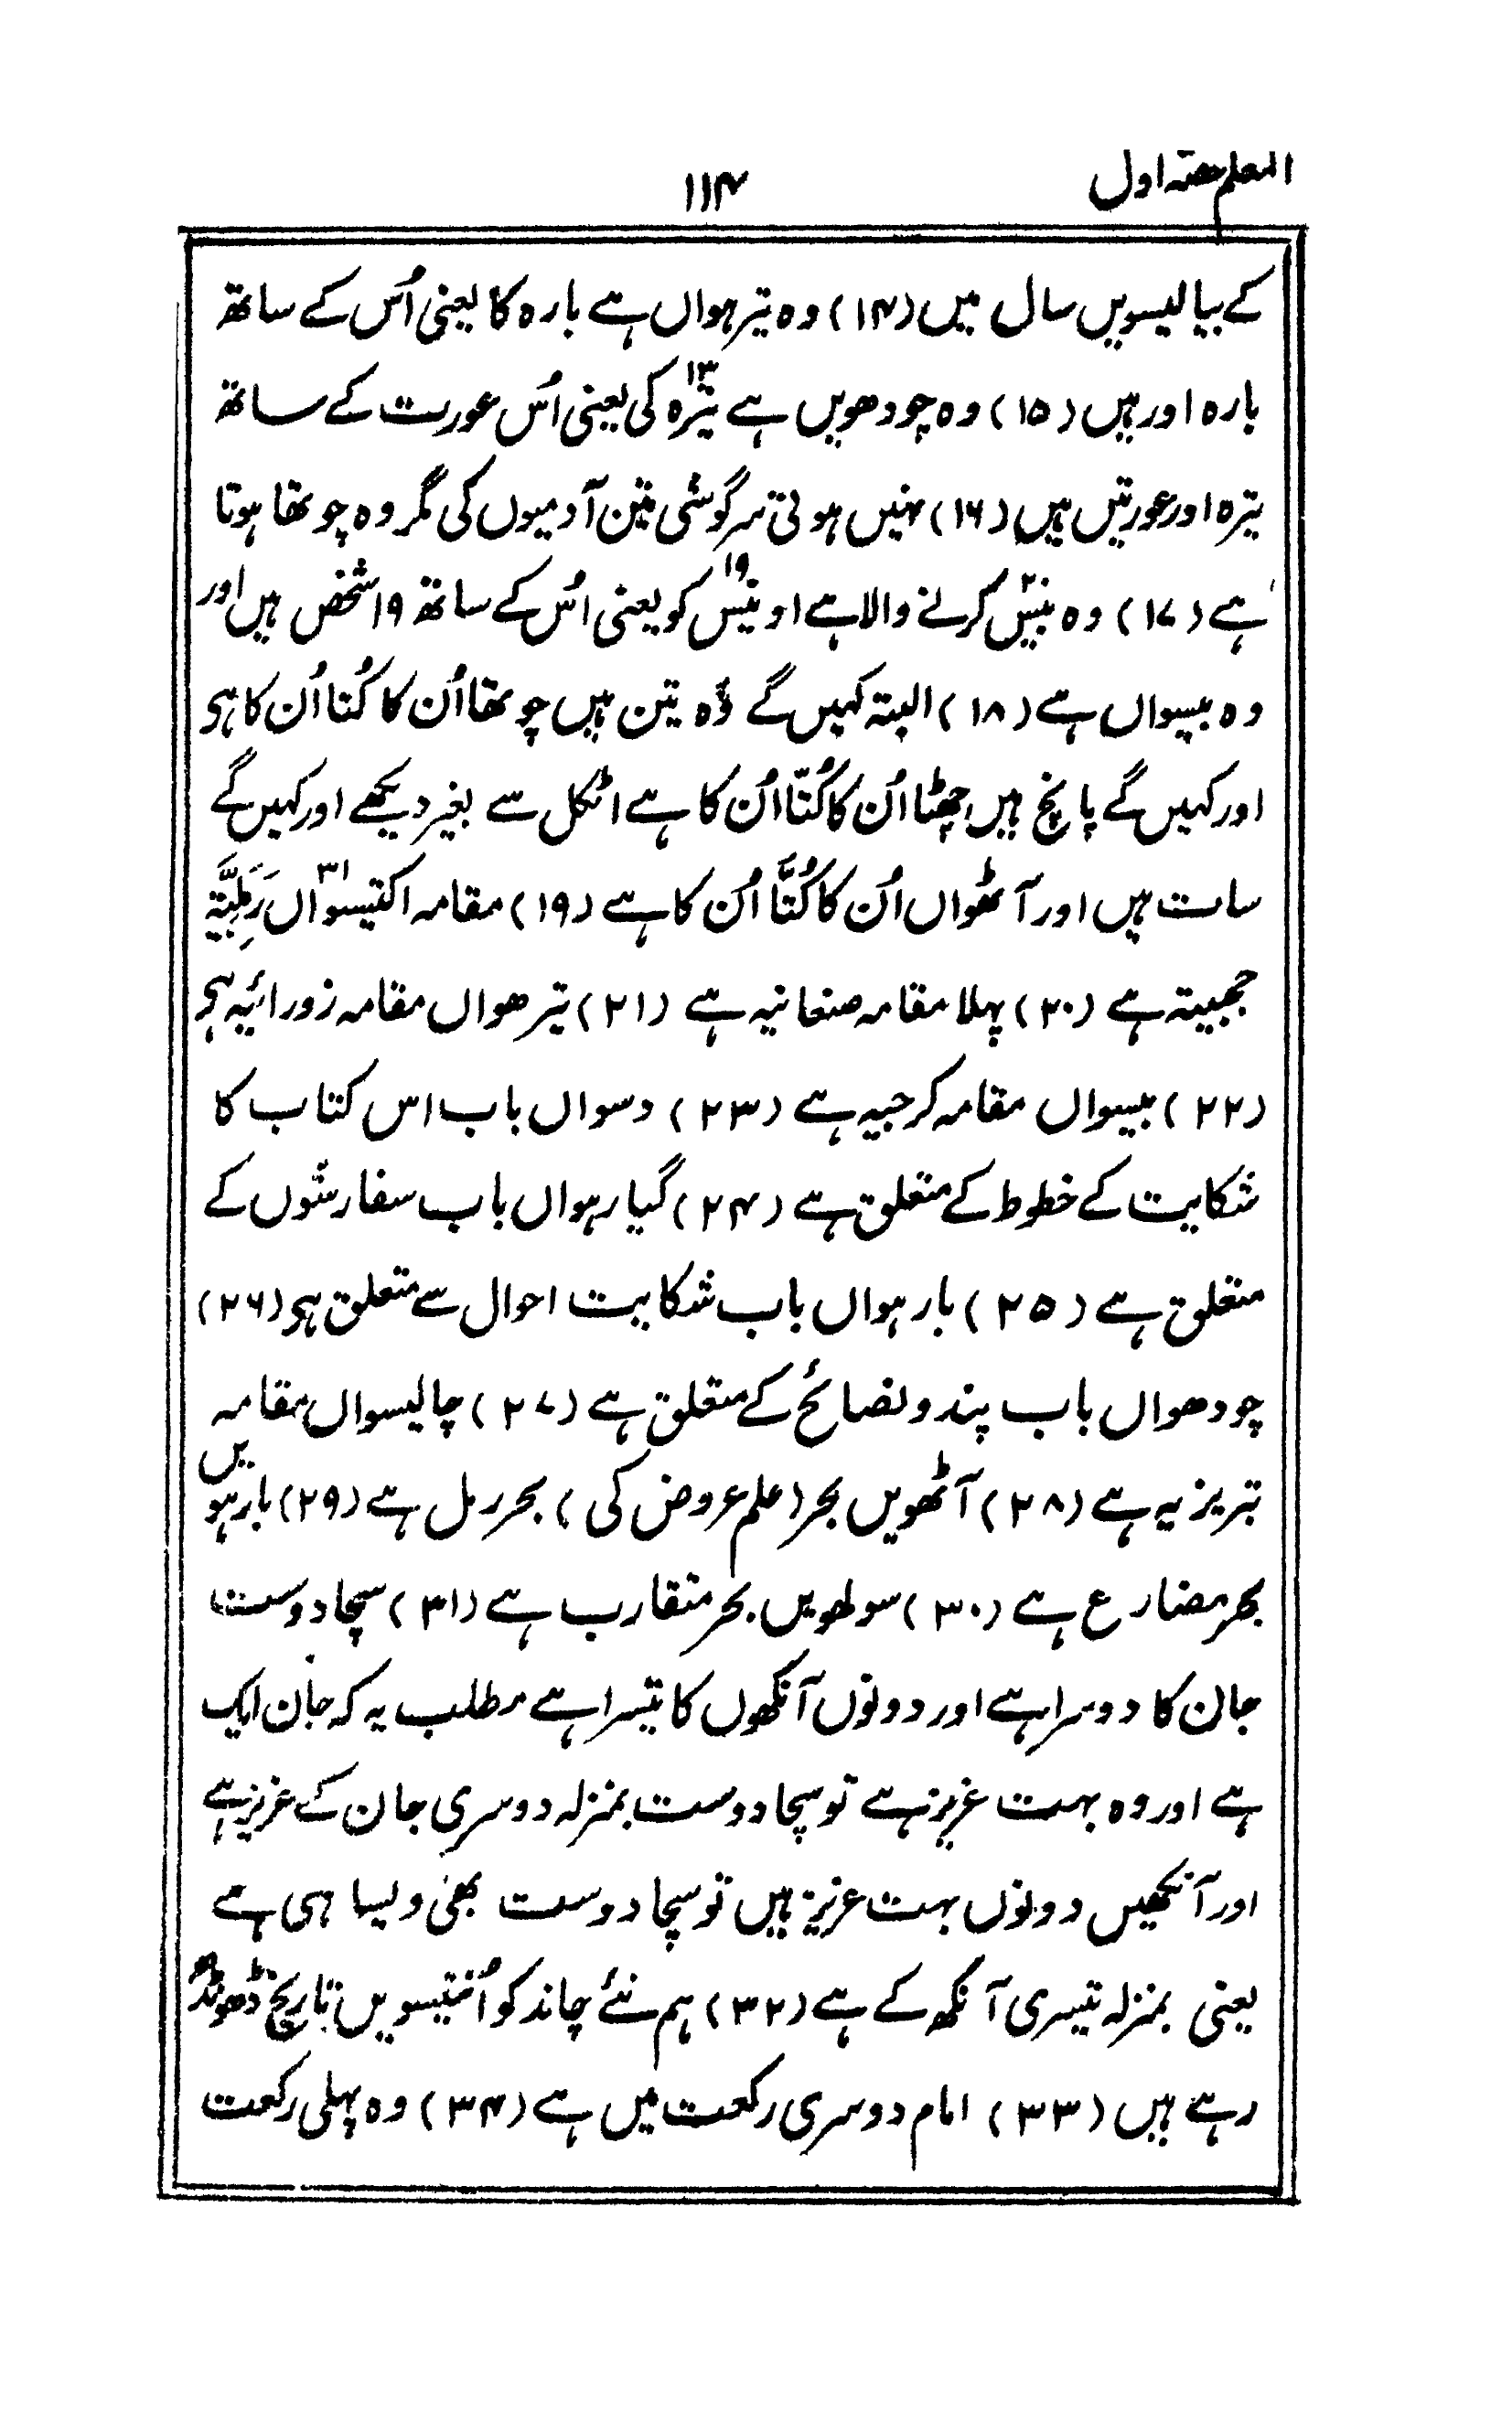 المعلم حصہ اول
۱۱۴
کے بیالیسویں سال میں (۱۴) وہ تیرہواں ہے بارہ کا یعنی اُس کے ساتھ
بارہ اور ہیں (۱۵) وہ چودھویں ہے تیرہ ۱۳ کی یعنی اُس عورت کے ساتھ
تیرہ اور عورتیں ہیں (۱۶) نہیں ہوتی سرگوشی تین آدمیوں کی مگر وہ چوتھا ہوتا
ہے (۱۷) وہ بیس ۲۰ کرنے والا ہے اونیس ۱۹ کو یعنی اُس کے ساتھ ۱۹ شخص ہیں اور
وہ بیسواں ہے (۱۸) البتہ کہیں گے وُہ تین ہیں چوتھا اُن کا کُتا اُن کا ہی
اور کہیں گے پانچ ہیں چھٹا اُن کا کُتّا اُن کا ہے اٹکل سے بغیر دیکھے اور کہیں گے
سات ہیں اور آٹھواں اُن کا کُتَّا اُن کا ہے (۱۹) مقامہ اکتیسواں ۳۱ رَمَلِیَّۃ
حجیتہ ہے (۲۰) پہلا مقامہ صنعانیہ ہے (۲۱) تیرھواں مقامہ زورائیہ ہی
(۲۲) بیسواں مقامہ کرجیہ ہے (۲۳) دسواں باب اس کتاب کا
شکایت کے خطوط کے متعلق ہے (۲۴) گیارہواں باب سفارشوں کے
متعلق ہے (۲۵) بارہواں باب شکایت احوال سے متعلق ہی (۲۶)
چودھواں باب پند و نصائح کے متعلق ہے (۲۷) چالیسواں مقامہ
تبریزیہ ہے (۲۸) آٹھویں بحر (علم عروض کی) بحر رمل ہے (۲۹) بارہویں
بحر مضارع ہے (۳۰) سولھویں بحر متقارب ہے (۳۱) سچا دوست
جان کا دوسرا ہے اور دونوں آنکھوں کا تیسرا ہے مطلب یہ کہ جان ایک
ہے اور وہ بہت عزیز ہے تو سچا دوست بمنزلہ دوسری جان کے عزیز ہے
اور آنکھیں دونوں بہت عزیز ہیں تو سچا دوست بھی ویسا ہی ہے
یعنی بمنزلہ تیسری آنکھ کے ہے (۳۲) ہم نئے چاند کو اُنتیسویں تاریخ ڈھونڈھ
رہے ہیں (۳۳) امام دوسری رکعت میں ہے (۳۴) وہ پہلی رکعت